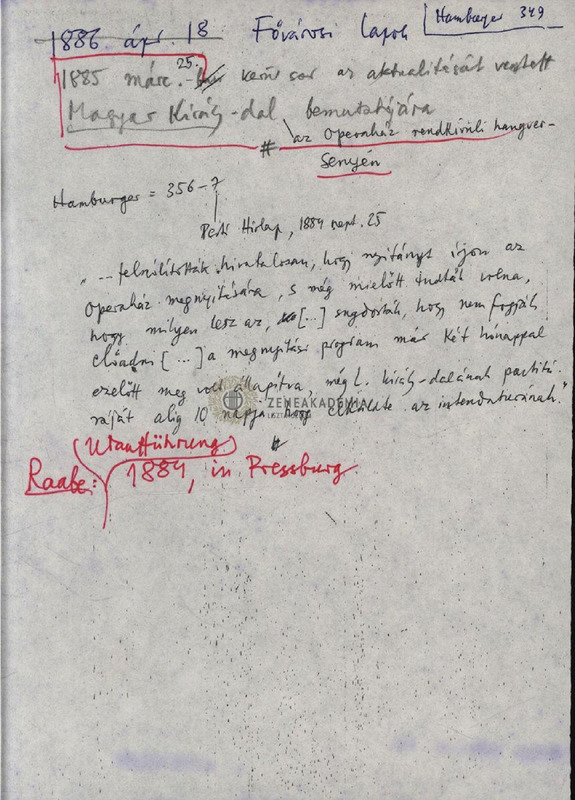 1886 ápr. 18 Fővárosi Lapok Hamburger 349
1885 márc. 25. kerül sor az aktualitását vesztett
Magyar Király-dal bemutatójára
# az Operaház rendkívüli hangver-
senyén
Hamburger = 356-7
Pesti Hírlap, 1884 szept. 25
"... felszólították hivatalosan, hogy nyitányt írjon az
Operaház megnyitására, s még mielőtt tudták volna,
hogy milyen lesz az, [...] sugdosták, hogy nem fogják
előadni [...] a megnyitási program már két hónappal
ezelőtt meg volt állapítva, míg L. király-dalának partitú-
ráját alig 10 napja, hogy elküldte az intendatúrának."
ZENEAKADÉMIA
LISZT
#
(Uraufführung)
Raabe: 1884, in Pressburg